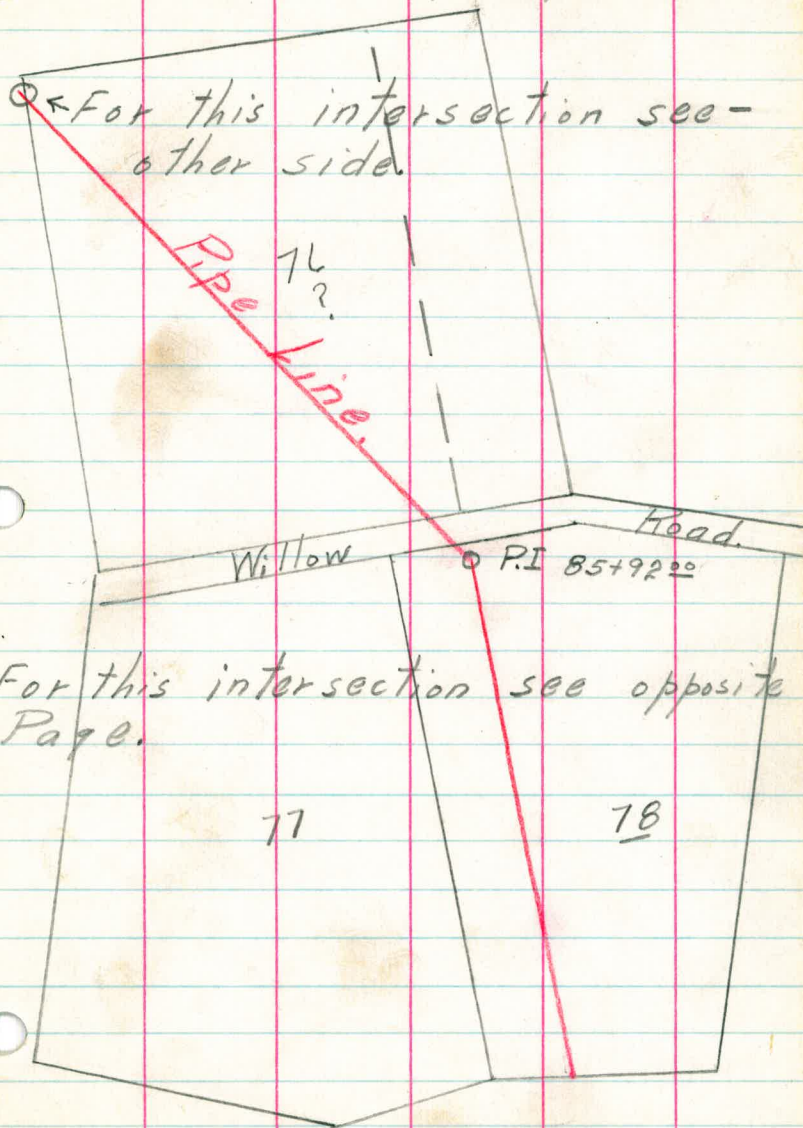 ← For this intersection see-
other side.
Pipe Line.
?
Willow Road.
P.I 85+92 00
For this intersection see opposite
Page.
77
78